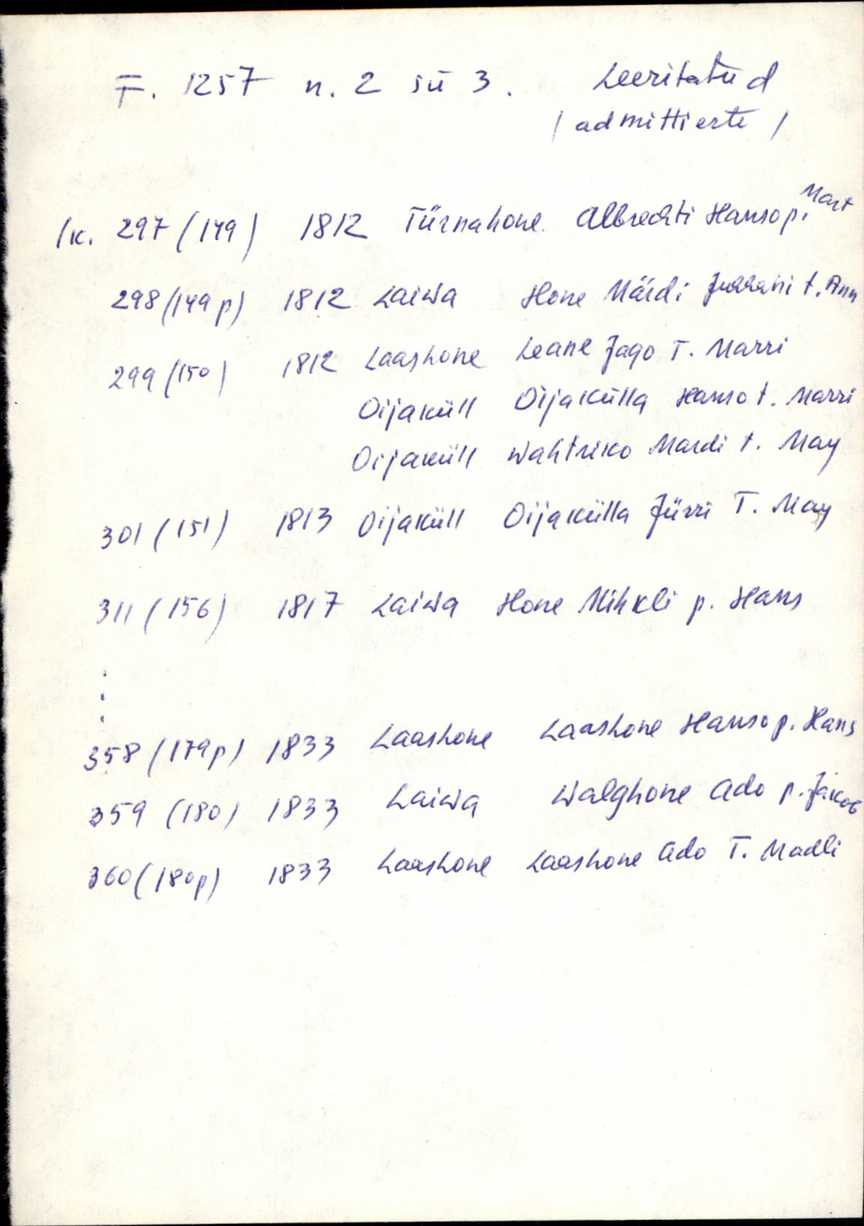 F. 1257 n. 2 sü 3. Leeritatud
/ admittierte /
lk. 297 (149) 1812 Türnahone. Albrechti Hanso p. Mart
298 (149 p) 1812 Laiwa Hone Märdi t. Ann
299 (150) 1812 Laashone Leane Jago T. Marri
Oijaküll Oijakülla Hanso t. Marri
Oijaküll Wahtriko Mardi t. May
301 (151) 1813 Oijaküll Oijakülla Jürri T. May
311 (156) 1817 Laiwa Hone Mihkli p. Hans
⋮
358 (179p) 1833 Laashone Laashone Hanso p. Hans
359 (180) 1833 Laiwa Walghone Ado p. Jakob
360 (180p) 1833 Laashone Laashone Ado T. Madli